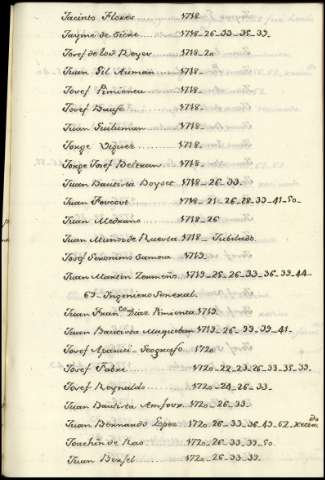 Jacinto Flores 1718-
Jayme de Sicre 1718-26-33-35-39
Josef de los Reyes 1718-20
Juan Gil Auman 1718-
Josef Pimienta 1718-
Josef 1718-
Juan 1718-
Jorge 1718-
Jorge Josef Beltran 1718-
Juan Bautista 1718-26-33
Juan 1718-21-26-28-33-41-50
Juan Medrano 1718-26
Juan Munoz de Ruesta 1718- Jubilado
Josef Geronimo 1719
Juan Martin Zermeño 1719-25-26-33-36-39-44-
69- Ingeniero General
Juan Franco Diaz Pimienta 1719
Juan Bautista 1719-26-33-39-41-
Josef Aparici - Geografo 1720
Josef Fabre 1720-22-23-26-33-35-39
Josef Reynaldo 1720-24-26-33-
Juan Bautista 1720-26-33
Juan Bernardo 1720-26-33-36-49-62
Joachin de Rao 1720-26-33-39-50
Juan 1720-26-33-39